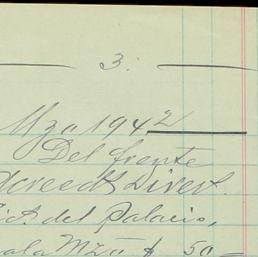 3.
Mzo 1942
Del frente
Acreeds Divers.
del Palacio,
Mzo $ 50 —